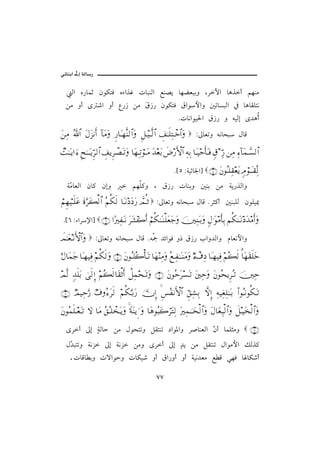 رسالة إلى الله ابتنائي
منهم أخذها الآخر، وبعضها يصنع النبات غذاءه فتكون ثماره التي
نتلقاها في البساتين والأسواق فتكون رزق من زرع أو اشترى أو من
أهدى إليه و رزق الحيوانات.
قال سبحانه وتعالى: ﴿ وَٱخْتِلَـٰفِ ٱلَّيْلِ وَٱلنَّهَارِ وَمَآ أَنزَلَ ٱللَّهُ مِنَ
ٱلسَّمَآءِ مِن رِّزْقٍ فَأَحْيَا بِهِ ٱلْأَرْضَ بَعْدَ مَوْتِهَا وَتَصْرِيفِ ٱلرِّيَـٰحِ ءَايَـٰتٌ
لِّقَوْمٍ يَعْقِلُونَ ۝ ﴾ [الجاثية: ٥].
والذرية من بنين وبنات رزق ، وكلهم خير وإن كان العامّة
يميلون للبنين أكثر. قال سبحانه وتعالى: ﴿ ثُمَّ رَدَدْنَا لَكُمُ ٱلْكَرَّةَ عَلَيْهِمْ
وَأَمْدَدْنَـٰكُم بِأَمْوَٰلٍ وَبَنِينَ وَجَعَلْنَـٰكُمْ أَكْثَرَ نَفِيرًا ۝ ﴾ [الإسراء: ٦].
والأنعام والدواب رزق ذو فوائد جمّه. قال سبحانه وتعالى: ﴿ وَٱلْأَنْعَـٰمَ
خَلَقَهَا لَكُمْ فِيهَا دِفْءٌ وَمَنَـٰفِعُ وَمِنْهَا تَأْكُلُونَ ۝ وَلَكُمْ فِيهَا جَمَالٌ
حِينَ تُرِيحُونَ وَحِينَ تَسْرَحُونَ ۝ وَتَحْمِلُ أَثْقَالَكُمْ إِلَىٰ بَلَدٍ لَّمْ
تَكُونُوا۟ بَـٰلِغِيهِ إِلَّا بِشِقِّ ٱلْأَنفُسِ إِنَّ رَبَّكُمْ لَرَءُوفٌ رَّحِيمٌ ۝
وَٱلْخَيْلَ وَٱلْبِغَالَ وَٱلْحَمِيرَ لِتَرْكَبُوهَا وَزِينَةً وَيَخْلُقُ مَا لَا تَعْلَمُونَ
۝ ﴾ ومثلما أنّ العناصر والمواد تنتقل وتتحول من حالةٍ إلى أخرى
كذلك الأموال تنتقل من يدٍ إلى أخرى ومن خزنة إلى خزنة وتتبدّل
أشكالها فهي قطع معدنية أو أوراق أو شيكات وحوالات وبطاقات.
٧٧